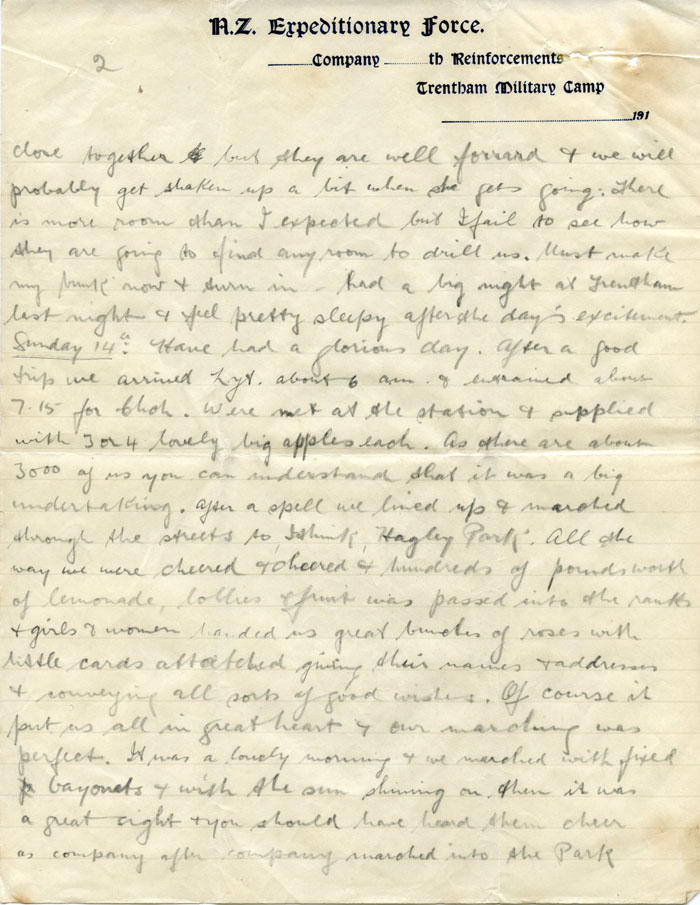 N.Z. Expeditionary Force.
2
Company th Reinforcements
Trentham Military Camp
191
close together but they are well forrard & we will
probably get shaken up a bit when she gets going. There
is more room than I expected but I fail to see how
they are going to find any room to drill us. Must make
my bunk now & turn in - had a big night at Trentham
last night & feel pretty sleepy after the day's excitement.
Sunday 14th. Have had a glorious day. After a good
trip we arrived Lyt. about 6 am. & entrained about
7.15 for Chch. Were met at the station & supplied
with 3 or 4 lovely big apples each. As there are about
3000 of us you can understand that it was a big
undertaking. After a spell we lined up & marched
through the streets to, I think, 'Hagley Park'. All the
way we were cheered & cheered & hundreds of pounds worth
of lemonade, lollies & fruit was passed into the ranks
& girls & women handed us great bunches of roses with
little cards attatched giving their names & addresses
& conveying all sorts of good wishes. Of course it
put us all in great heart & our marching was
perfect. It was a lovely morning & we marched with fixed
bayonets & with the sun shining on them it was
a great sight & you should have heard them cheer
as company after company marched into the Park